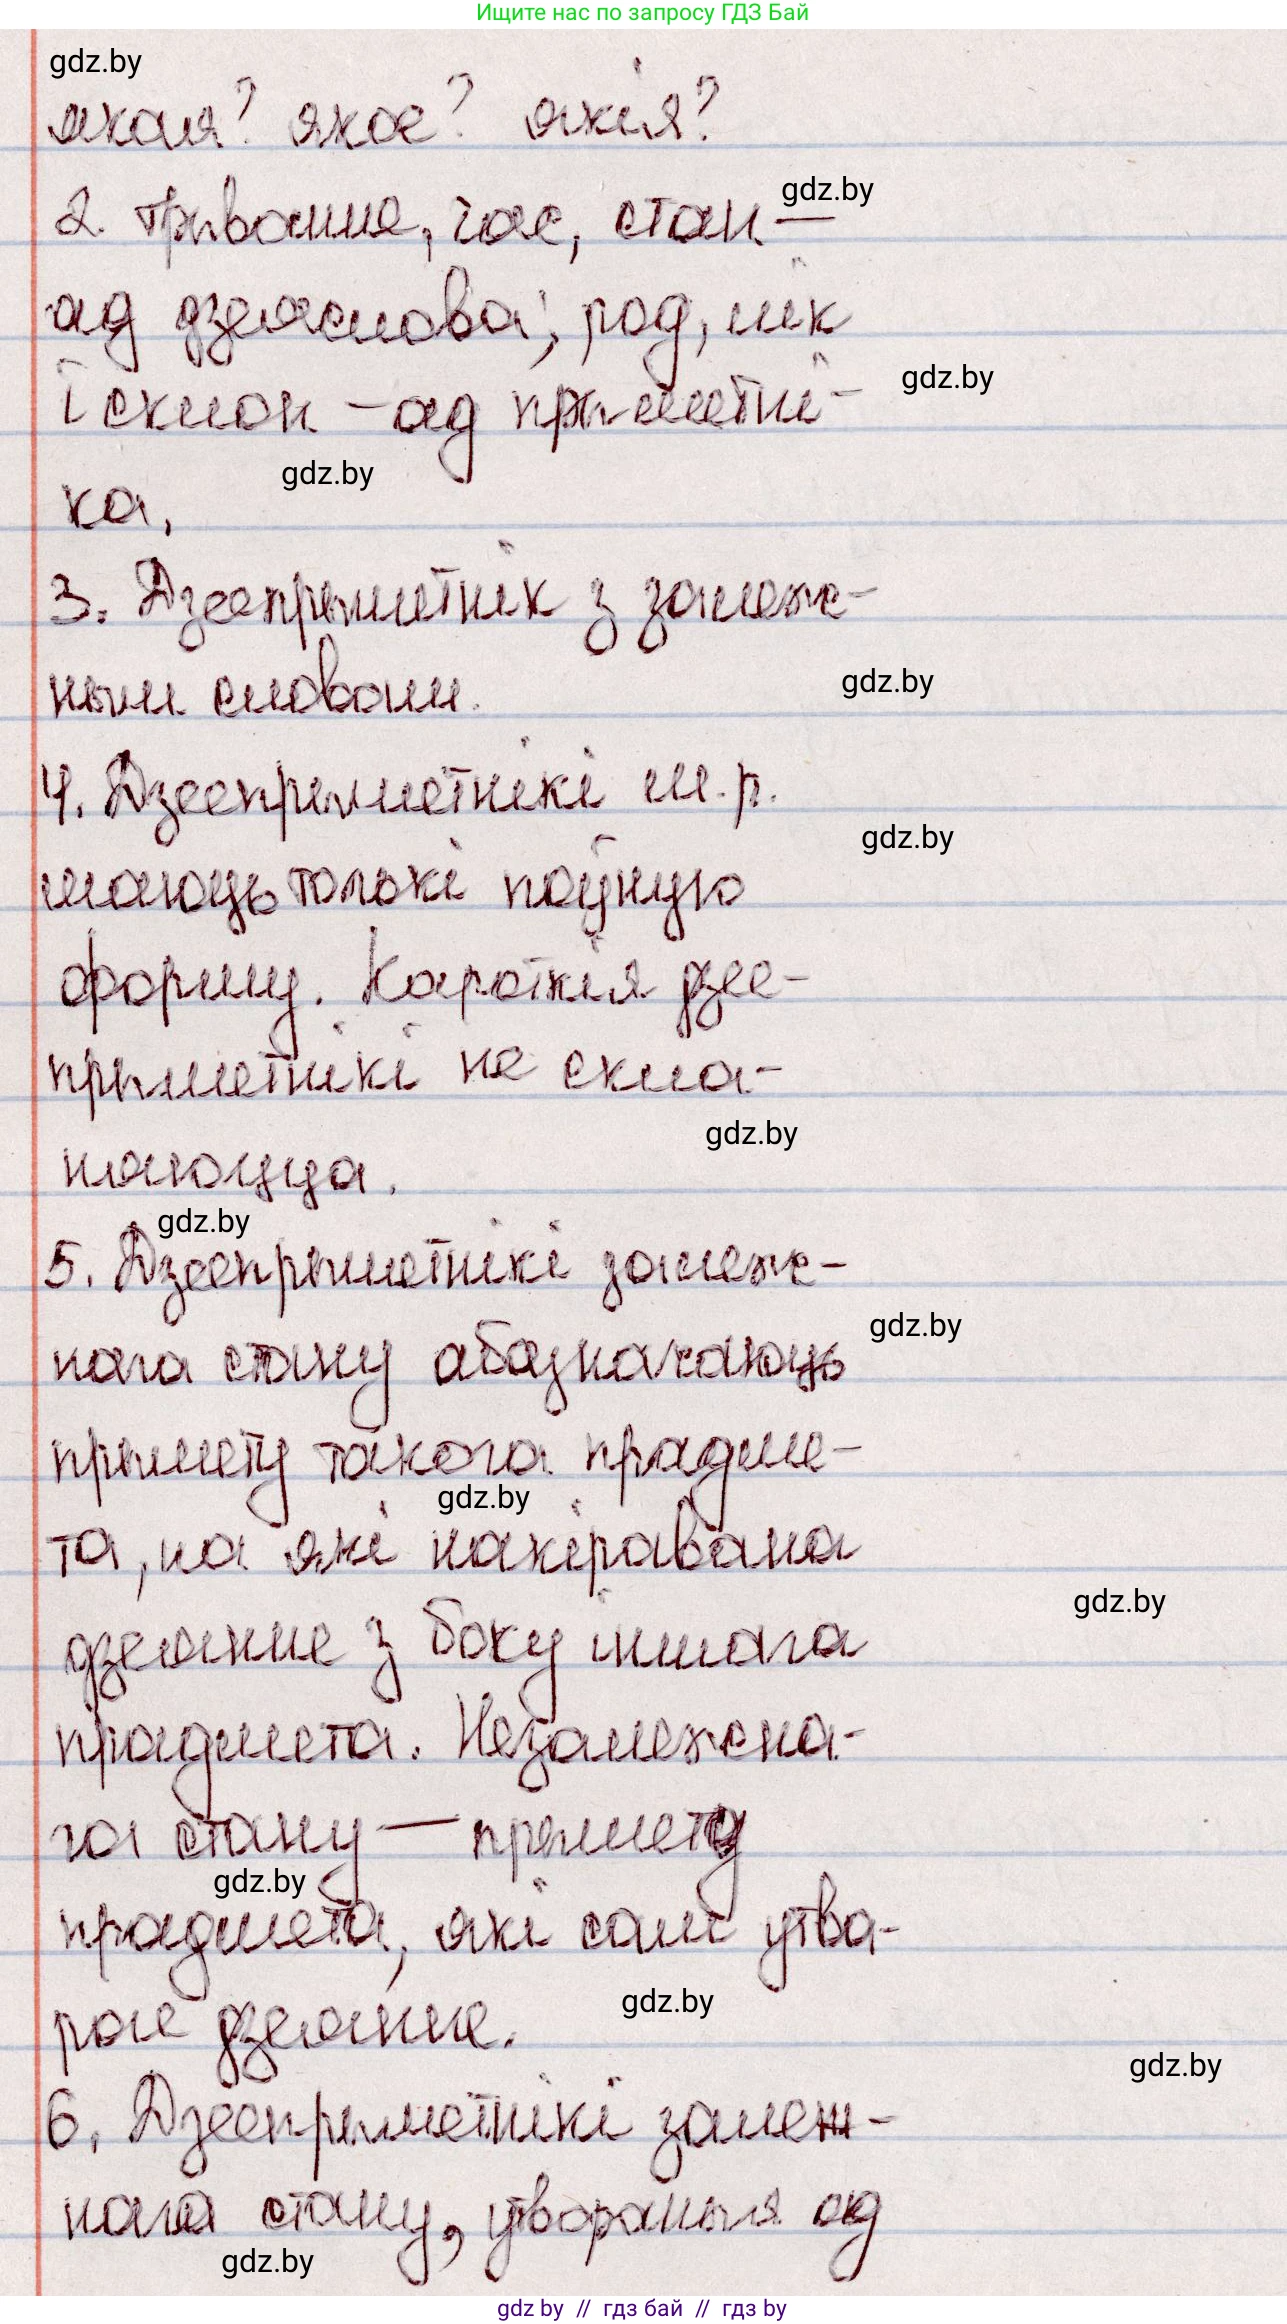 Ищите нас по запросу ГДЗ Бай
gdz.by
якая? якое? якія?
gdz.by
2. Трыванне, час, стан —
ад дзеяслова; род, лік
і склон – ад прыметні-
gdz.by
gdz.by
ка.
3. Дзеепрыметнік з залеж-
ным словам.
gdz.by
4. Дзеепрыметнікі м.р.
gdz.by
маюць толькі поўную
форму. Кароткія дзее-
прыметнікі не скла-
gdz.by
няюцца.
gdz.by
5. Дзеепрыметнікі залеж-
gdz.by
нага стану абазначаюць
прымету такога прадме-
gdz.by
та, на які накіравана
gdz.by
дзеянне з боку іншага
прадмета. Незалежна-
га стану — прымету
gdz.by
прадмета, які сам утва-
рае дзеянне.
gdz.by
gdz.by
6. Дзеепрыметнікі залеж-
нага стану, утвораныя ад
gdz.by
gdz by // гдз бай // гдз by